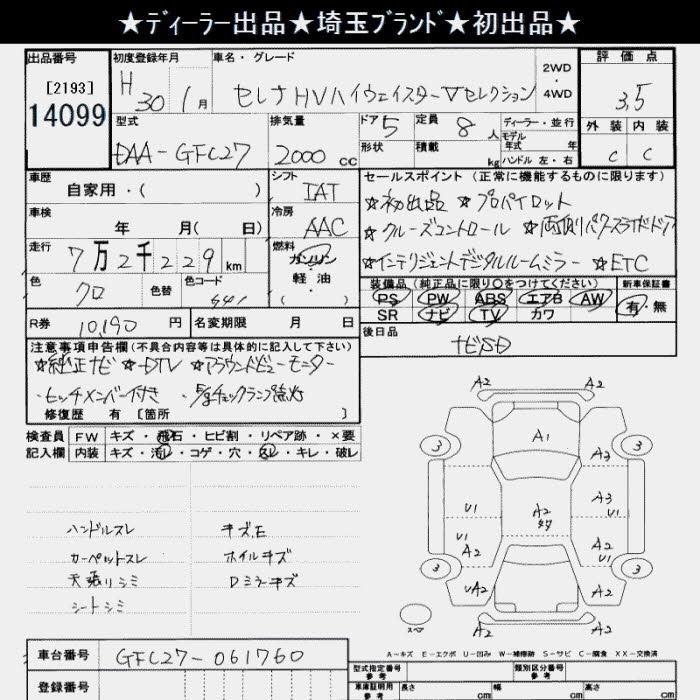 ★ディーラー出品★埼玉ブランド★初出品★
出品番号 [2193] 14099
初度登録年月 H 30 1月
車名・グレード セレナHVハイウェイスターVセレクション
2WD・4WD
評価点 3.5
外装 内装
C C
型式 DAA-GFC27
排気量 2000cc
ドア 5 形状
定員 8人 積載 kg
ディーラー・並行
モデル年式 年
ハンドル 左・右
車歴 自家用・( )
シフト IAT
セールスポイント(正常に機能するものに限ります)
★初出品 ★プロパイロット
★クルーズコントロール ★両側パワースライドドア
★インテリジェントデジタルルームミラー ★ETC
車検 年 月( 日)
冷房 AAC
走行 7万2千229km
燃料 ガソリン 軽油 ( )
色 クロ 色替 色コード
装備品(純正品に限り○をつけてください)
PS PW ABS エアB AW
SR ナビ TV カワ
新車保証書 有・無
R券 10,190円
名変期限 月 日
後日品 ナビSD
注意事項申告欄(不具合内容等は具体的に記入して下さい)
★純正ナビ ★DTV ★アラウンドビューモニター
・ヒッチメンバー付き
修復歴 有 [箇所 ]
検査員記入欄
FW キズ・飛石・ヒビ割・リペア跡・×要
内装 キズ・汚レ・コゲ・穴・スレ・キレ・破レ
ハンドルスレ キズ,E
カーペットスレ ホイルキズ
天張リシミ Dミラーキズ
シートシミ
A2 A2
3 A1 3
A2 A3
U1 A2 U1
U1 A2 A2 U1
3 3
UA2 A2
A2 A2
スペア
A-キズ E-エクボ U-凹み W-補修跡 S-サビ C-腐食 XX-交換済
車台番号 GFC27-061760
型式指定番号 参考
類別区分番号 参考
車庫証明用 参考 長さ cm 幅 cm 高さ cm